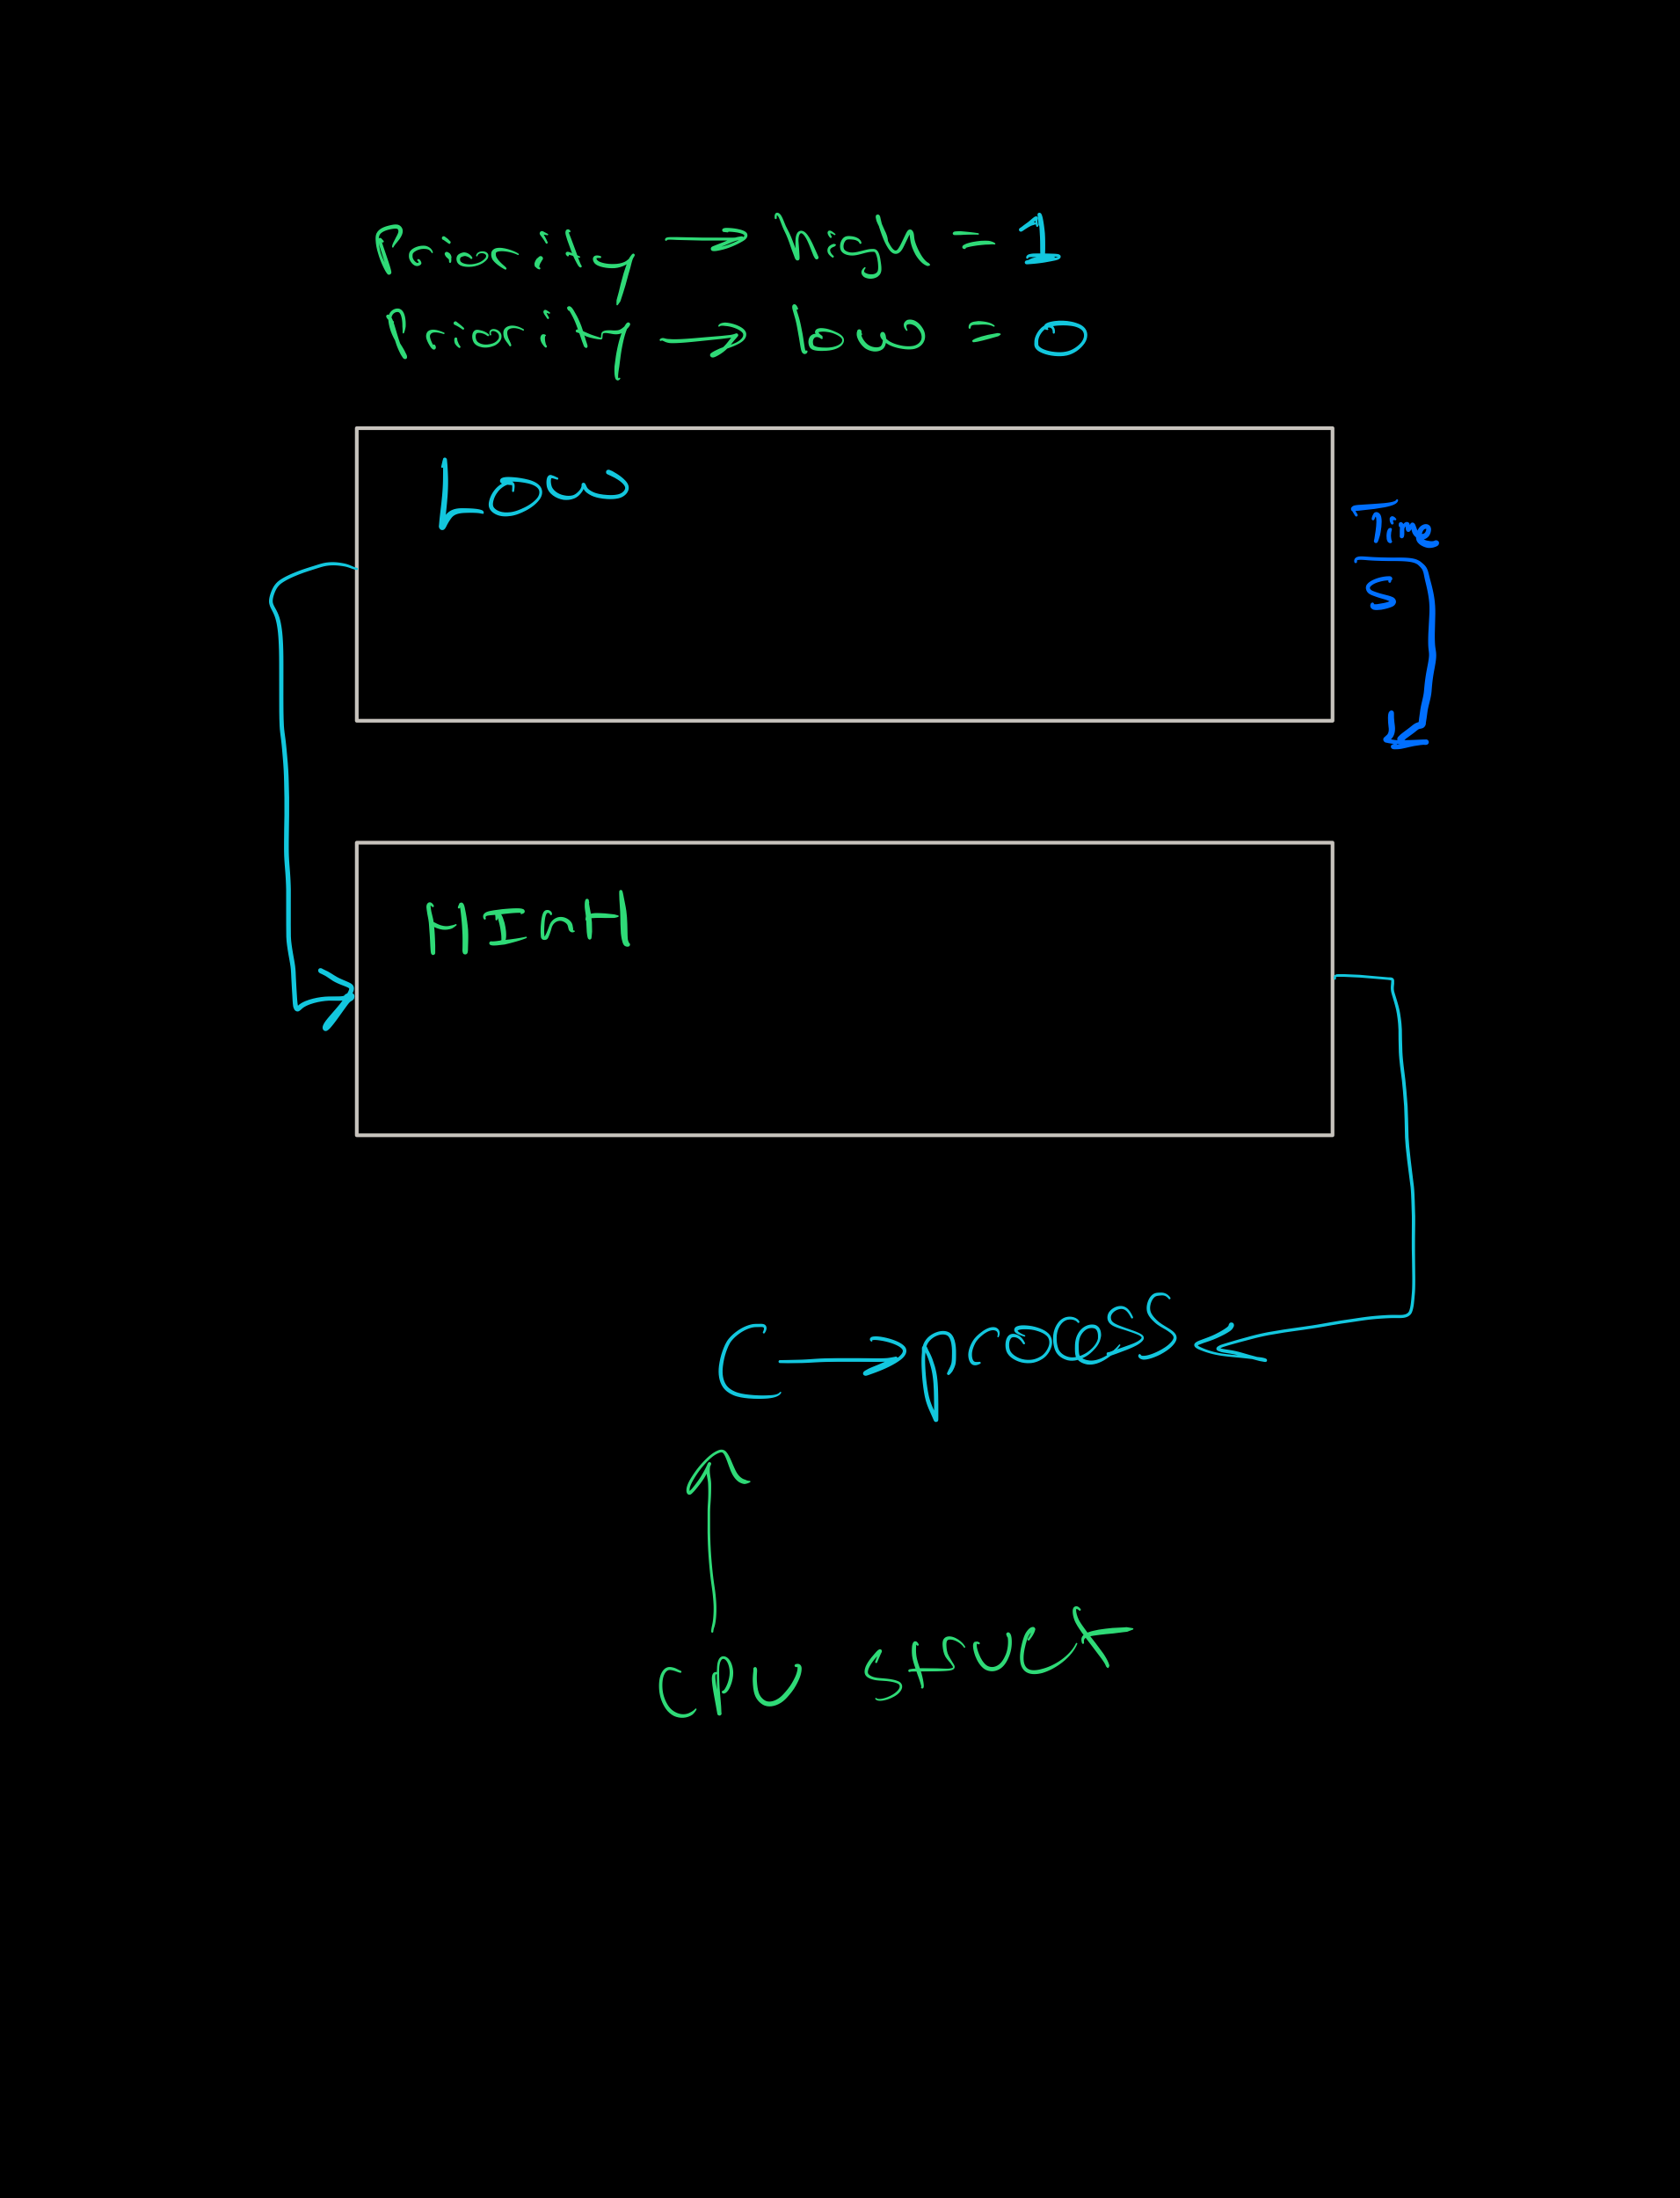 Priority → high = 1
Priority → low = 0
LOW
Time
5
HIGH
C → process
CPU struct